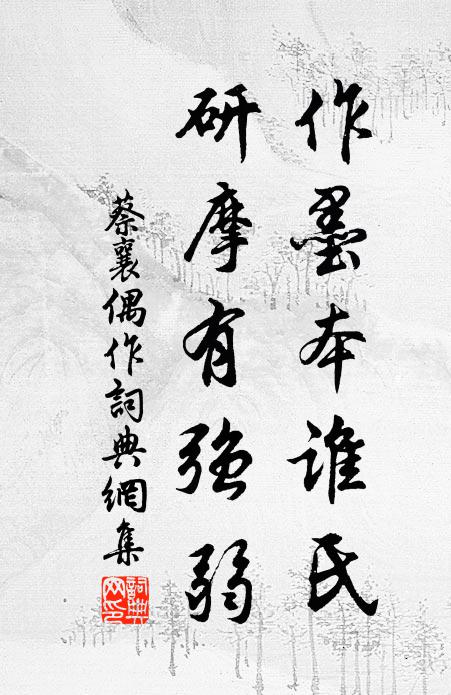 作墨本誰氏
研摩有強弱
蔡襄偶作詞典網集
詞典網印